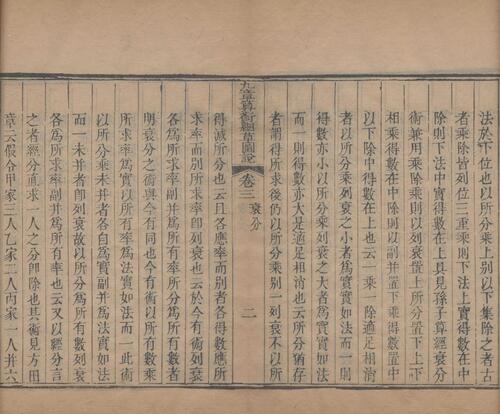 法於下位也以所分乘上別以下集除之者古
者乘除皆列位三重乘則下法上實得數在中
除則下法中實得數在上具見孫子算經衰分
術兼用乘除則以列衰置上所分置下上下
相乘得數在中除則以副并置下乘得數置中
以下除中得數在上也云一乘一除適足相消
者以所分乘列衰之小者爲實實如法而一則
得數亦小以所分乘列衰之大者爲實實如法
而一則得數亦大是適足相消也云所分猶存
者謂得所求後仍以所分乘別一列衰不以所
九章算術細草圖說 卷三 衰分 二
得減所分也云且各應率而別者各得數應所
求率而別所求率卽列衰也云於今有術列衰
各爲所求率副并爲所有率所分爲所有數者
明衰分之術與今有同也今有術以所有數乘
所求率爲實以所有率爲法實如法而一此術
以所分乘未并者各自爲實副并爲法實如法
而一未并者卽列衰故以所分爲所有數列衰
各爲所求率副并爲所有率也云又以經分言
之者經分直求一人之分卽除也其術見方田
章云假令甲家三人乙家二人丙家一人并六